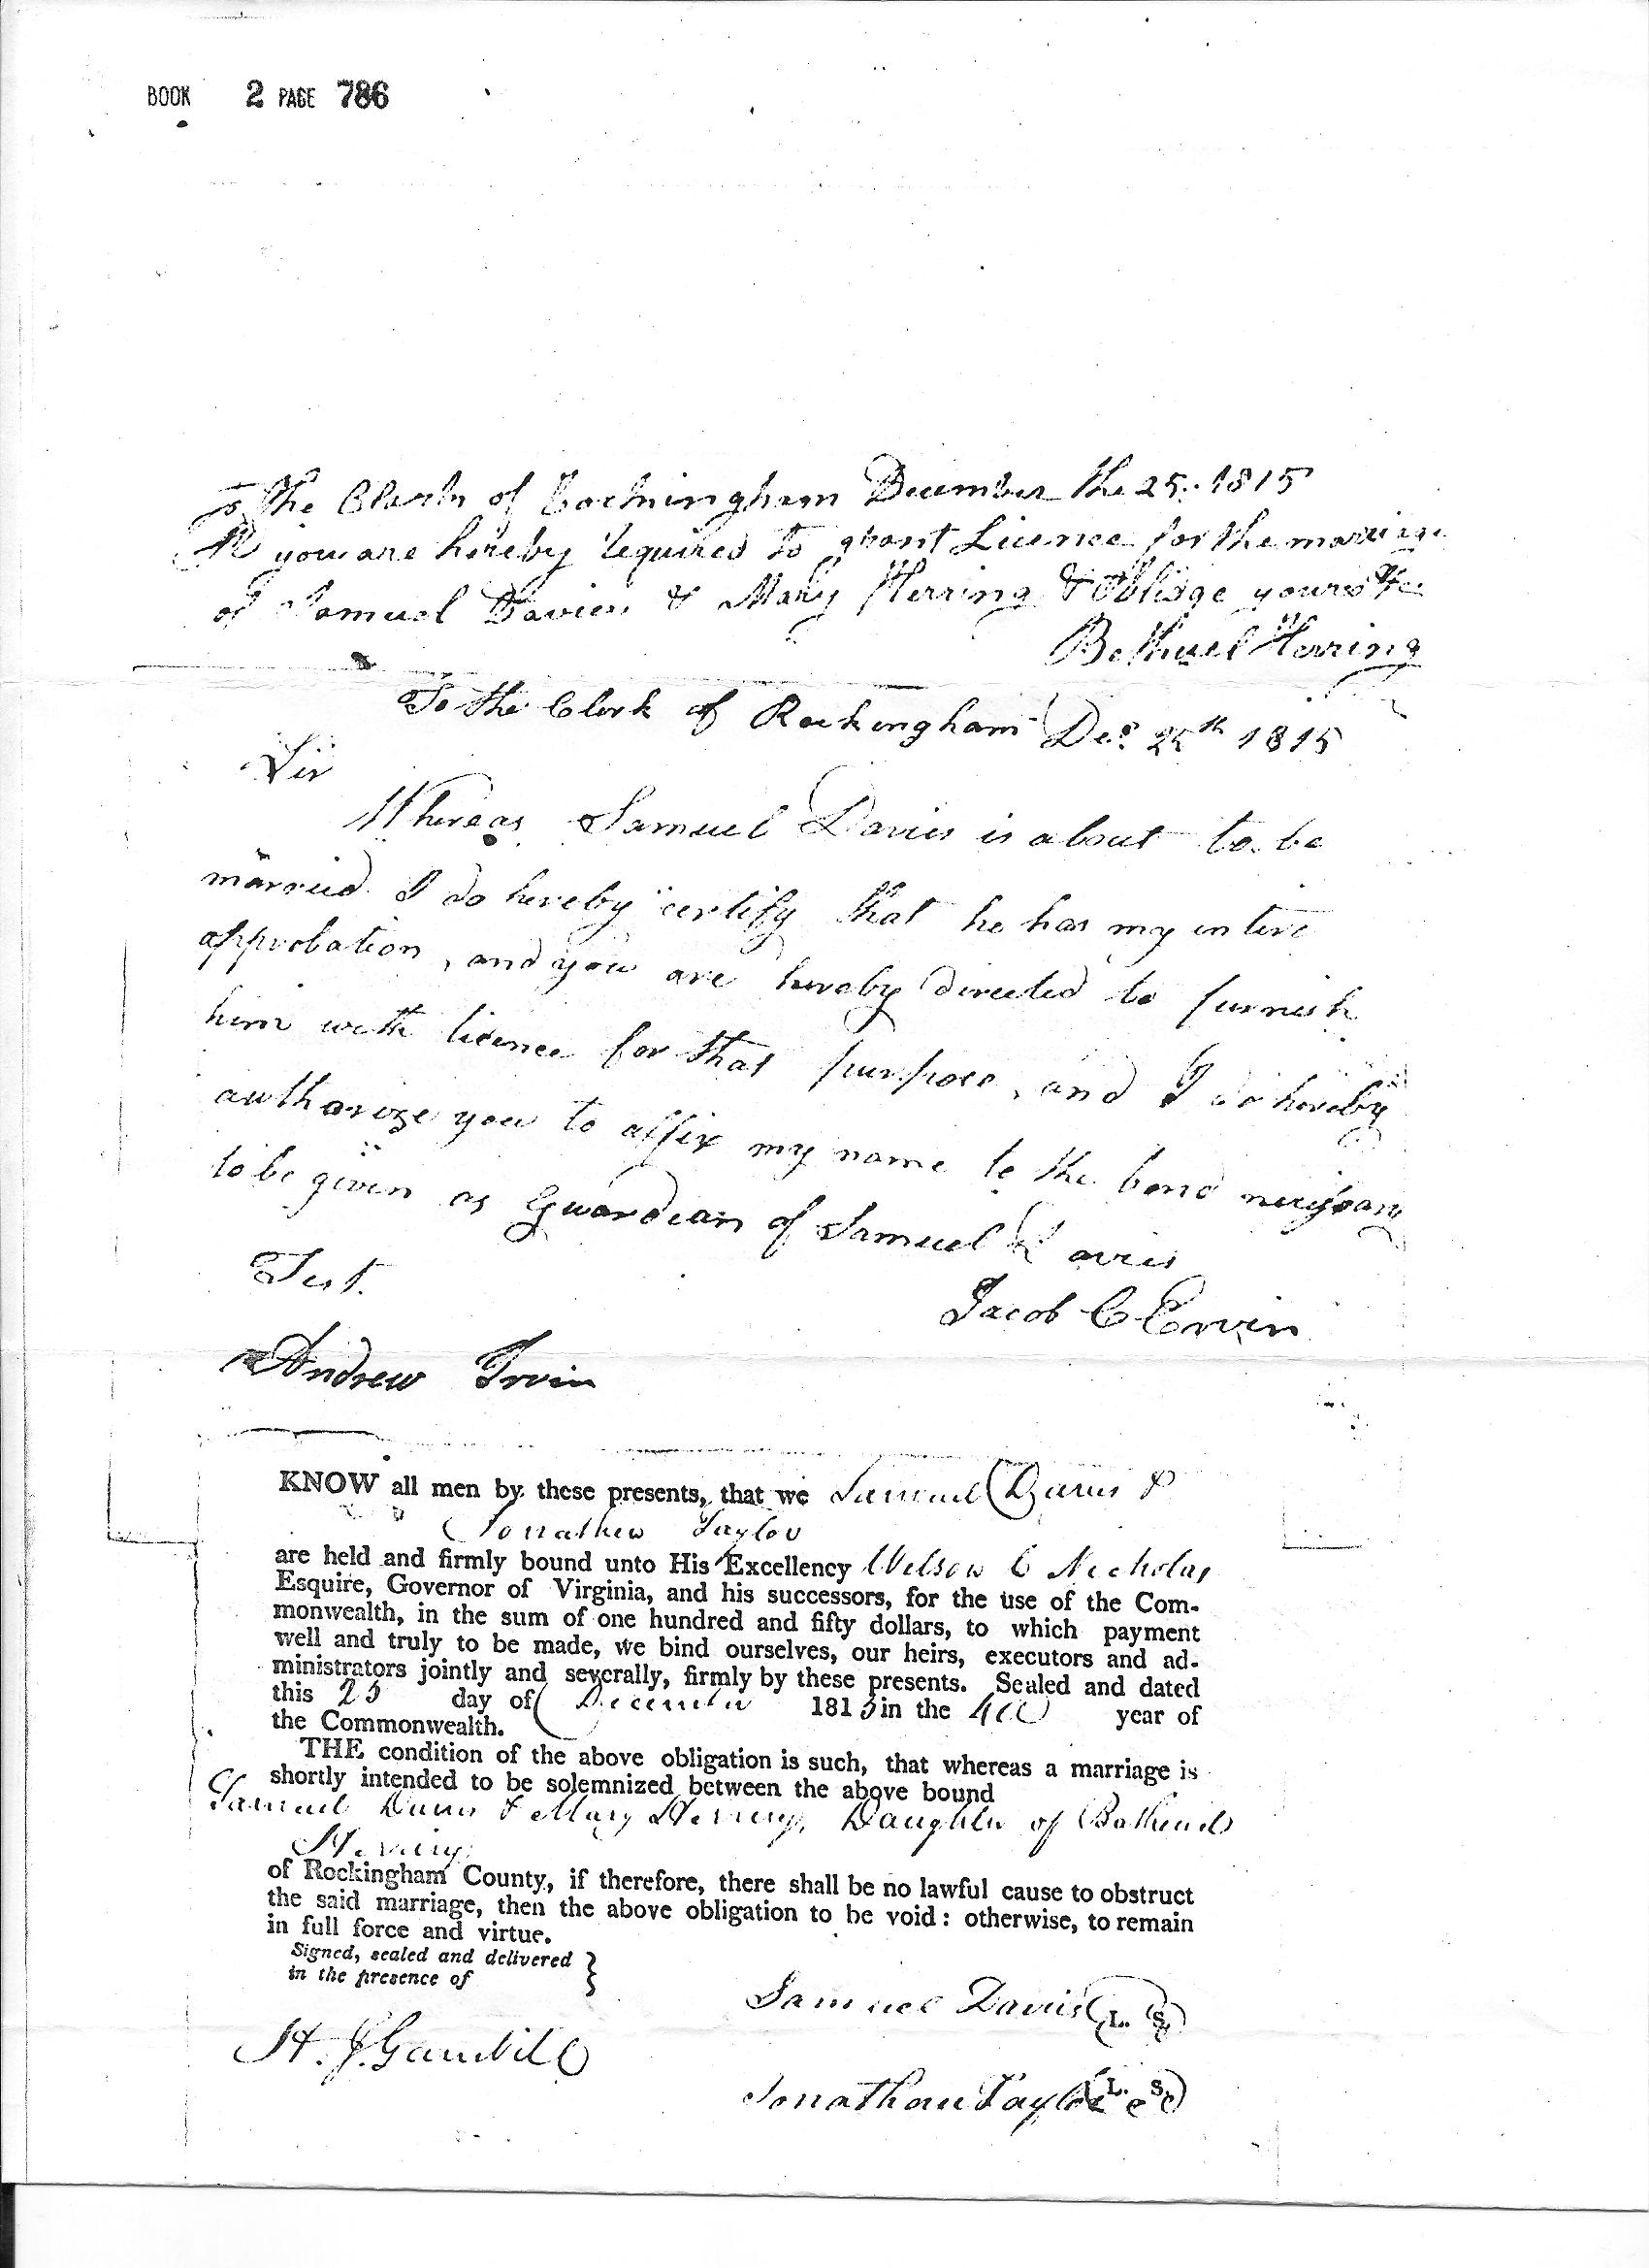 BOOK 2 PAGE 786
To the Clerk of Rockingham December the 25. 1815
you are hereby required to grant Licence for the marriage
of Samuel Davies & Mary Herring & Oblidge yours &c
Bethuel Herring
To the Clerk of Rockingham Dec. 25th 1815
Sir
Whereas Samuel Davies is about to be
married I do hereby certify that he has my intire
approbation, and you are hereby directed to furnish
him with licence for that purpose, and I do hereby
authorize you to affix my name to the bond necessary
to be given as Guardian of Samuel Davies
Test.
Jacob C Ervin
Andrew Irvin
KNOW all men by these presents, that we Samuel Davis &
Jonathan Taylor
are held and firmly bound unto His Excellency Wilson C Nicholas
Esquire, Governor of Virginia, and his successors, for the use of the Com-
monwealth, in the sum of one hundred and fifty dollars, to which payment
well and truly to be made, we bind ourselves, our heirs, executors and ad-
ministrators jointly and severally, firmly by these presents. Sealed and dated
this 25 day of December 1815 in the 40 year of
the Commonwealth.
THE condition of the above obligation is such, that whereas a marriage is
shortly intended to be solemnized between the above bound
Samuel Davis & Mary Herring, Daughter of Bethuel
Herring
of Rockingham County, if therefore, there shall be no lawful cause to obstruct
the said marriage, then the above obligation to be void: otherwise, to remain
in full force and virtue.
Signed, sealed and delivered }
in the presence of
Samuel Davies (L. S.)
H. J. Gambill
Jonathan Taylor (L. S.)